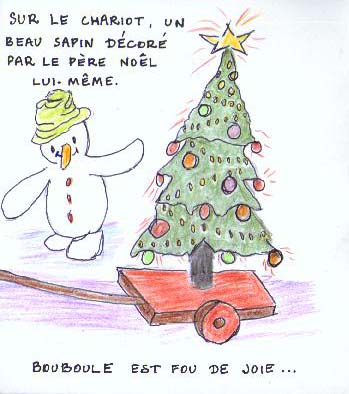 SUR LE CHARIOT, UN
BEAU SAPIN DÉCORÉ
PAR LE PÈRE NOËL
LUI-MÊME.
BOUBOULE EST FOU DE JOIE...